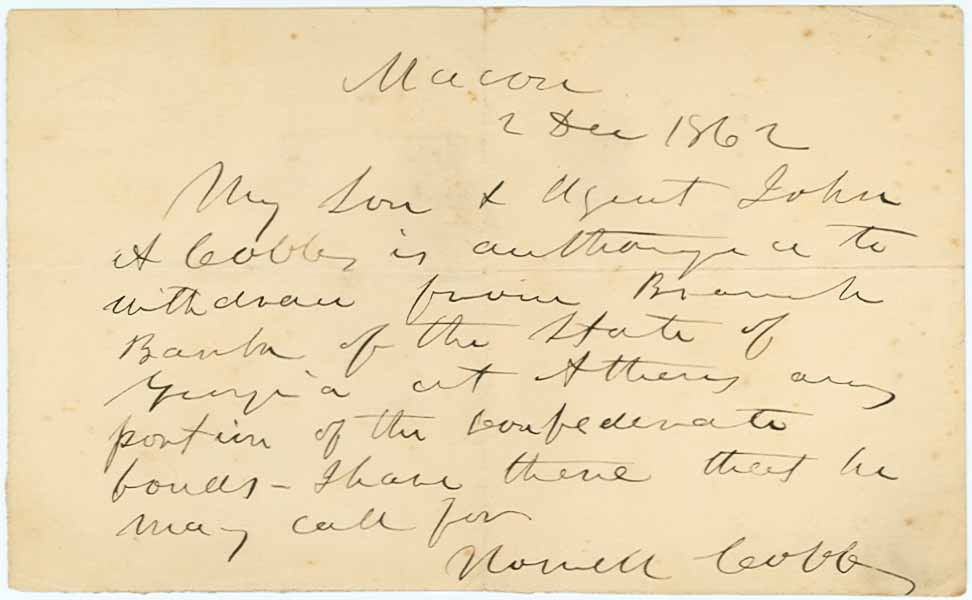 Macon
2 Dec 1862
My Son & Agent John
A Cobb, is authorized to
withdraw from Branch
Bank of the State of
Georgia at Athens any
portion of the Confederate
bonds - I have there that he
may call for
Howell Cobb